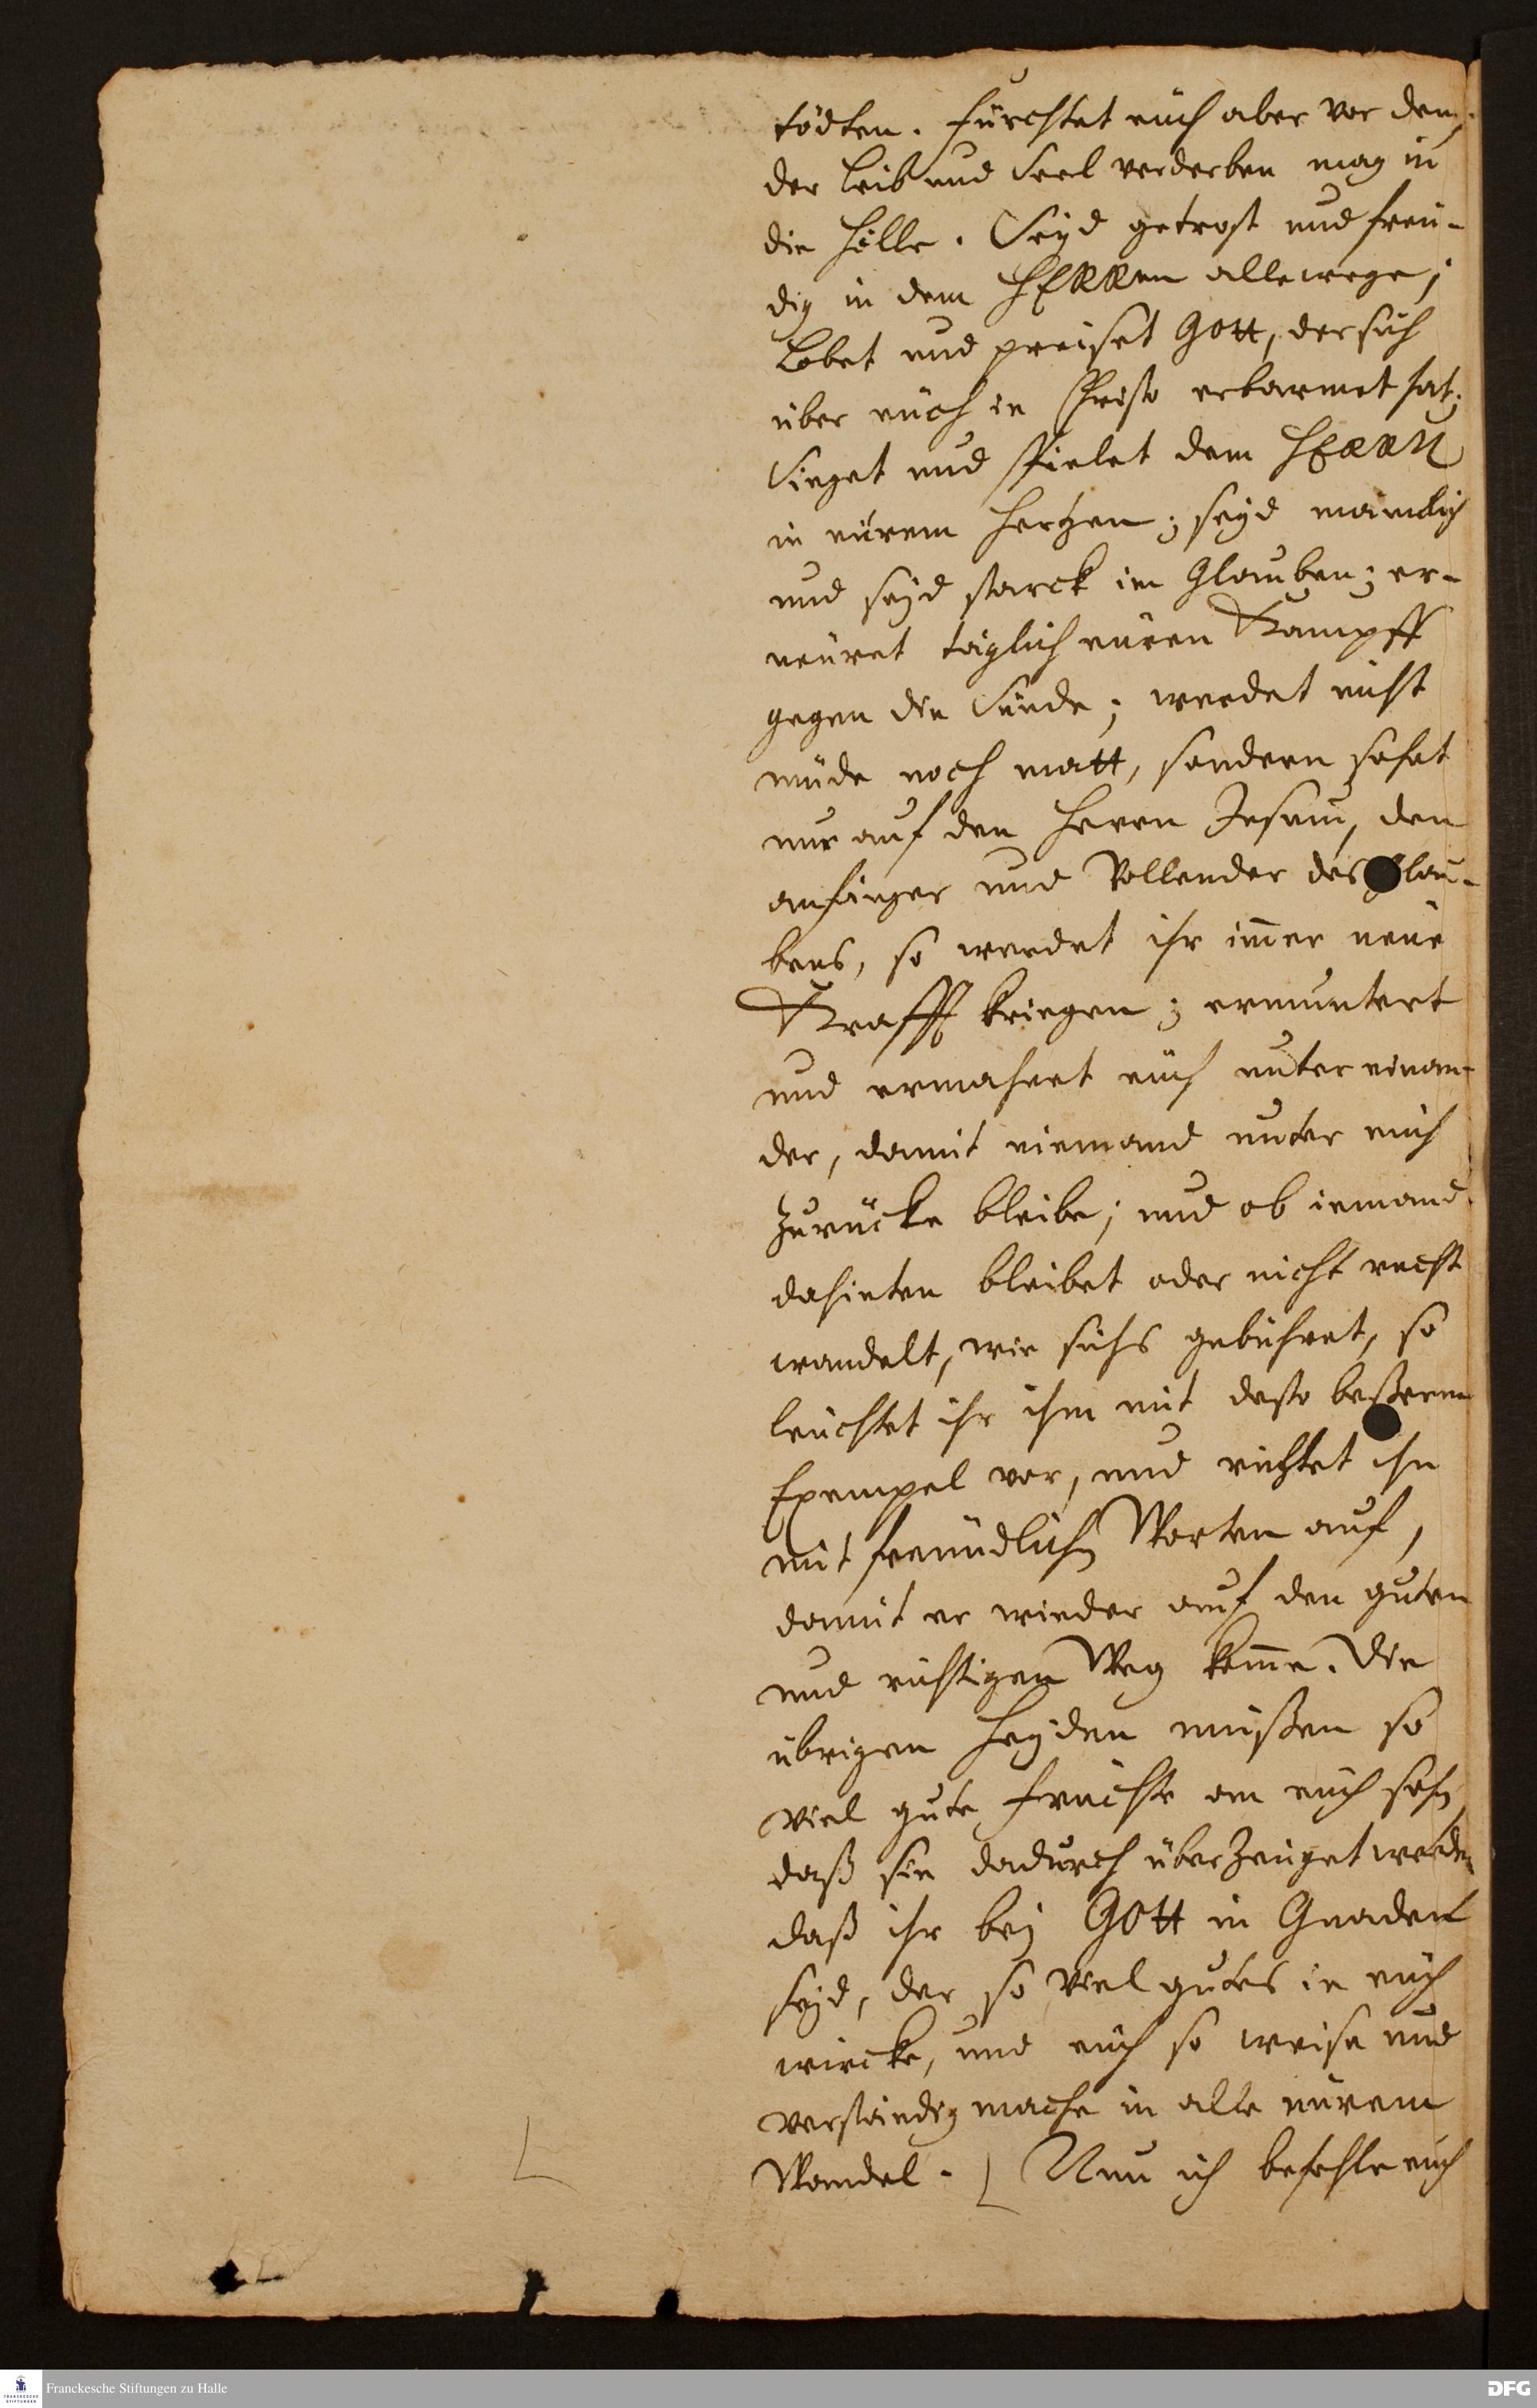 tödten. Fürchtet euch aber vor dem,
der Leib und Seel verderben mag in
die Hölle. Seyd getrost und freu-
dig in dem HERRen allewege;
Lobet und preiset Gott, der sich
über euch in Christo erbarmet hat;
Singet und spielet dem HERRN
in eürem Hertzen; seyd mänlich
und seyd starck im Glauben; er-
neüret täglich eüren Kampff
gegen die Sünde; werdet nicht
müde noch matt, sondern sehet
nur auf den Herrn Jesum, den
anfänger und Vollender des Glau-
bens, so werdet ihr im̅er neüe
Krafft kriegen; ermuntert
und ermahnet euch unter einan-
der, damit niemand unter euch
zurücke bleibe; und ob iemand
dahinten bleibet oder nicht recht
wandelt, wie sichs gebühret, so
leuchtet ihr ihm mit desto beßerem
Exempel vor, und richtet ihn
mit freündlichen Worten auf,
damit er wieder auf den guten
und richtigen Weg kom̅e. Die
übrigen Heyden müßen so
viel gute Früchte an euch sehen,
daß sie dadurch überzeuget werden
daß ihr bey GOtt in Gnaden
seyd, der so viel gutes in euch
wircke, und euch so weise und
verständig mache in alle eurem
Wandel. Nun ich befehle euch
Franckesche Stiftungen zu Halle
DFG